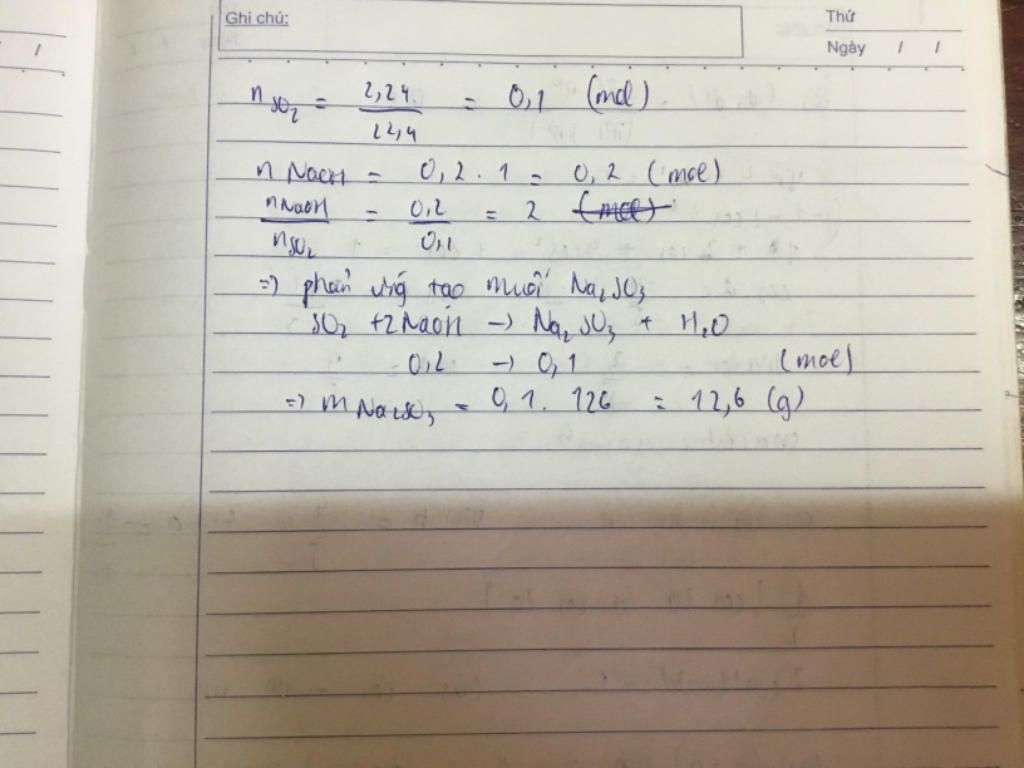 Ghi chú:
Thứ
Ngày / /
/ /
n SO₂ = 2,24 / 22,4 = 0,1 (mol)
n NaOH = 0,2 . 1 = 0,2 (mol)
nNaOH / nSO₂ = 0,2 / 0,1 = 2 (mol)
=> phản ứng tạo muối Na₂SO₃
SO₂ + 2NaOH → Na₂SO₃ + H₂O
0,2 → 0,1 (mol)
=> m Na₂SO₃ = 0,1 . 126 = 12,6 (g)